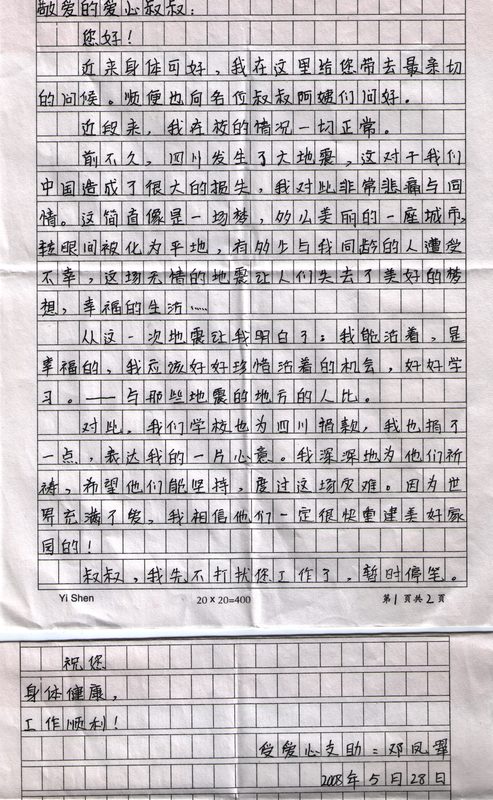 敬爱的爱心叔叔：
您好！
近来身体可好，我在这里给您带去最亲切
的问候。顺便也向各位叔叔阿姨们问好。
近段来，我在校的情况一切正常。
前不久，四川发生了大地震，这对于我们
中国造成了很大的损失，我对此非常悲痛与同
情。这简直像是一场梦，多么美丽的一座城市，
转眼间被化为平地，有多少与我同龄的人遭受
不幸，这场无情的地震让人们失去了美好的梦
想，幸福的生活……
从这一次地震让我明白了：我能活着，是
幸福的，我应该好好珍惜活着的机会，好好学
习。——与那些地震的地方的人比。
对此，我们学校也为四川捐款，我也捐了
一点，表达我的一片心意。我深深地为他们祈
祷，希望他们能坚持，度过这场灾难。因为世
界充满了爱，我相信他们一定很快重建美好家
园的！
叔叔，我先不打扰您工作了，暂时停笔。
Yi Shen 20×20=400 第1页共2页
祝您
身体健康，
工作顺利！
受爱心支助：邓凤
2008年5月28日